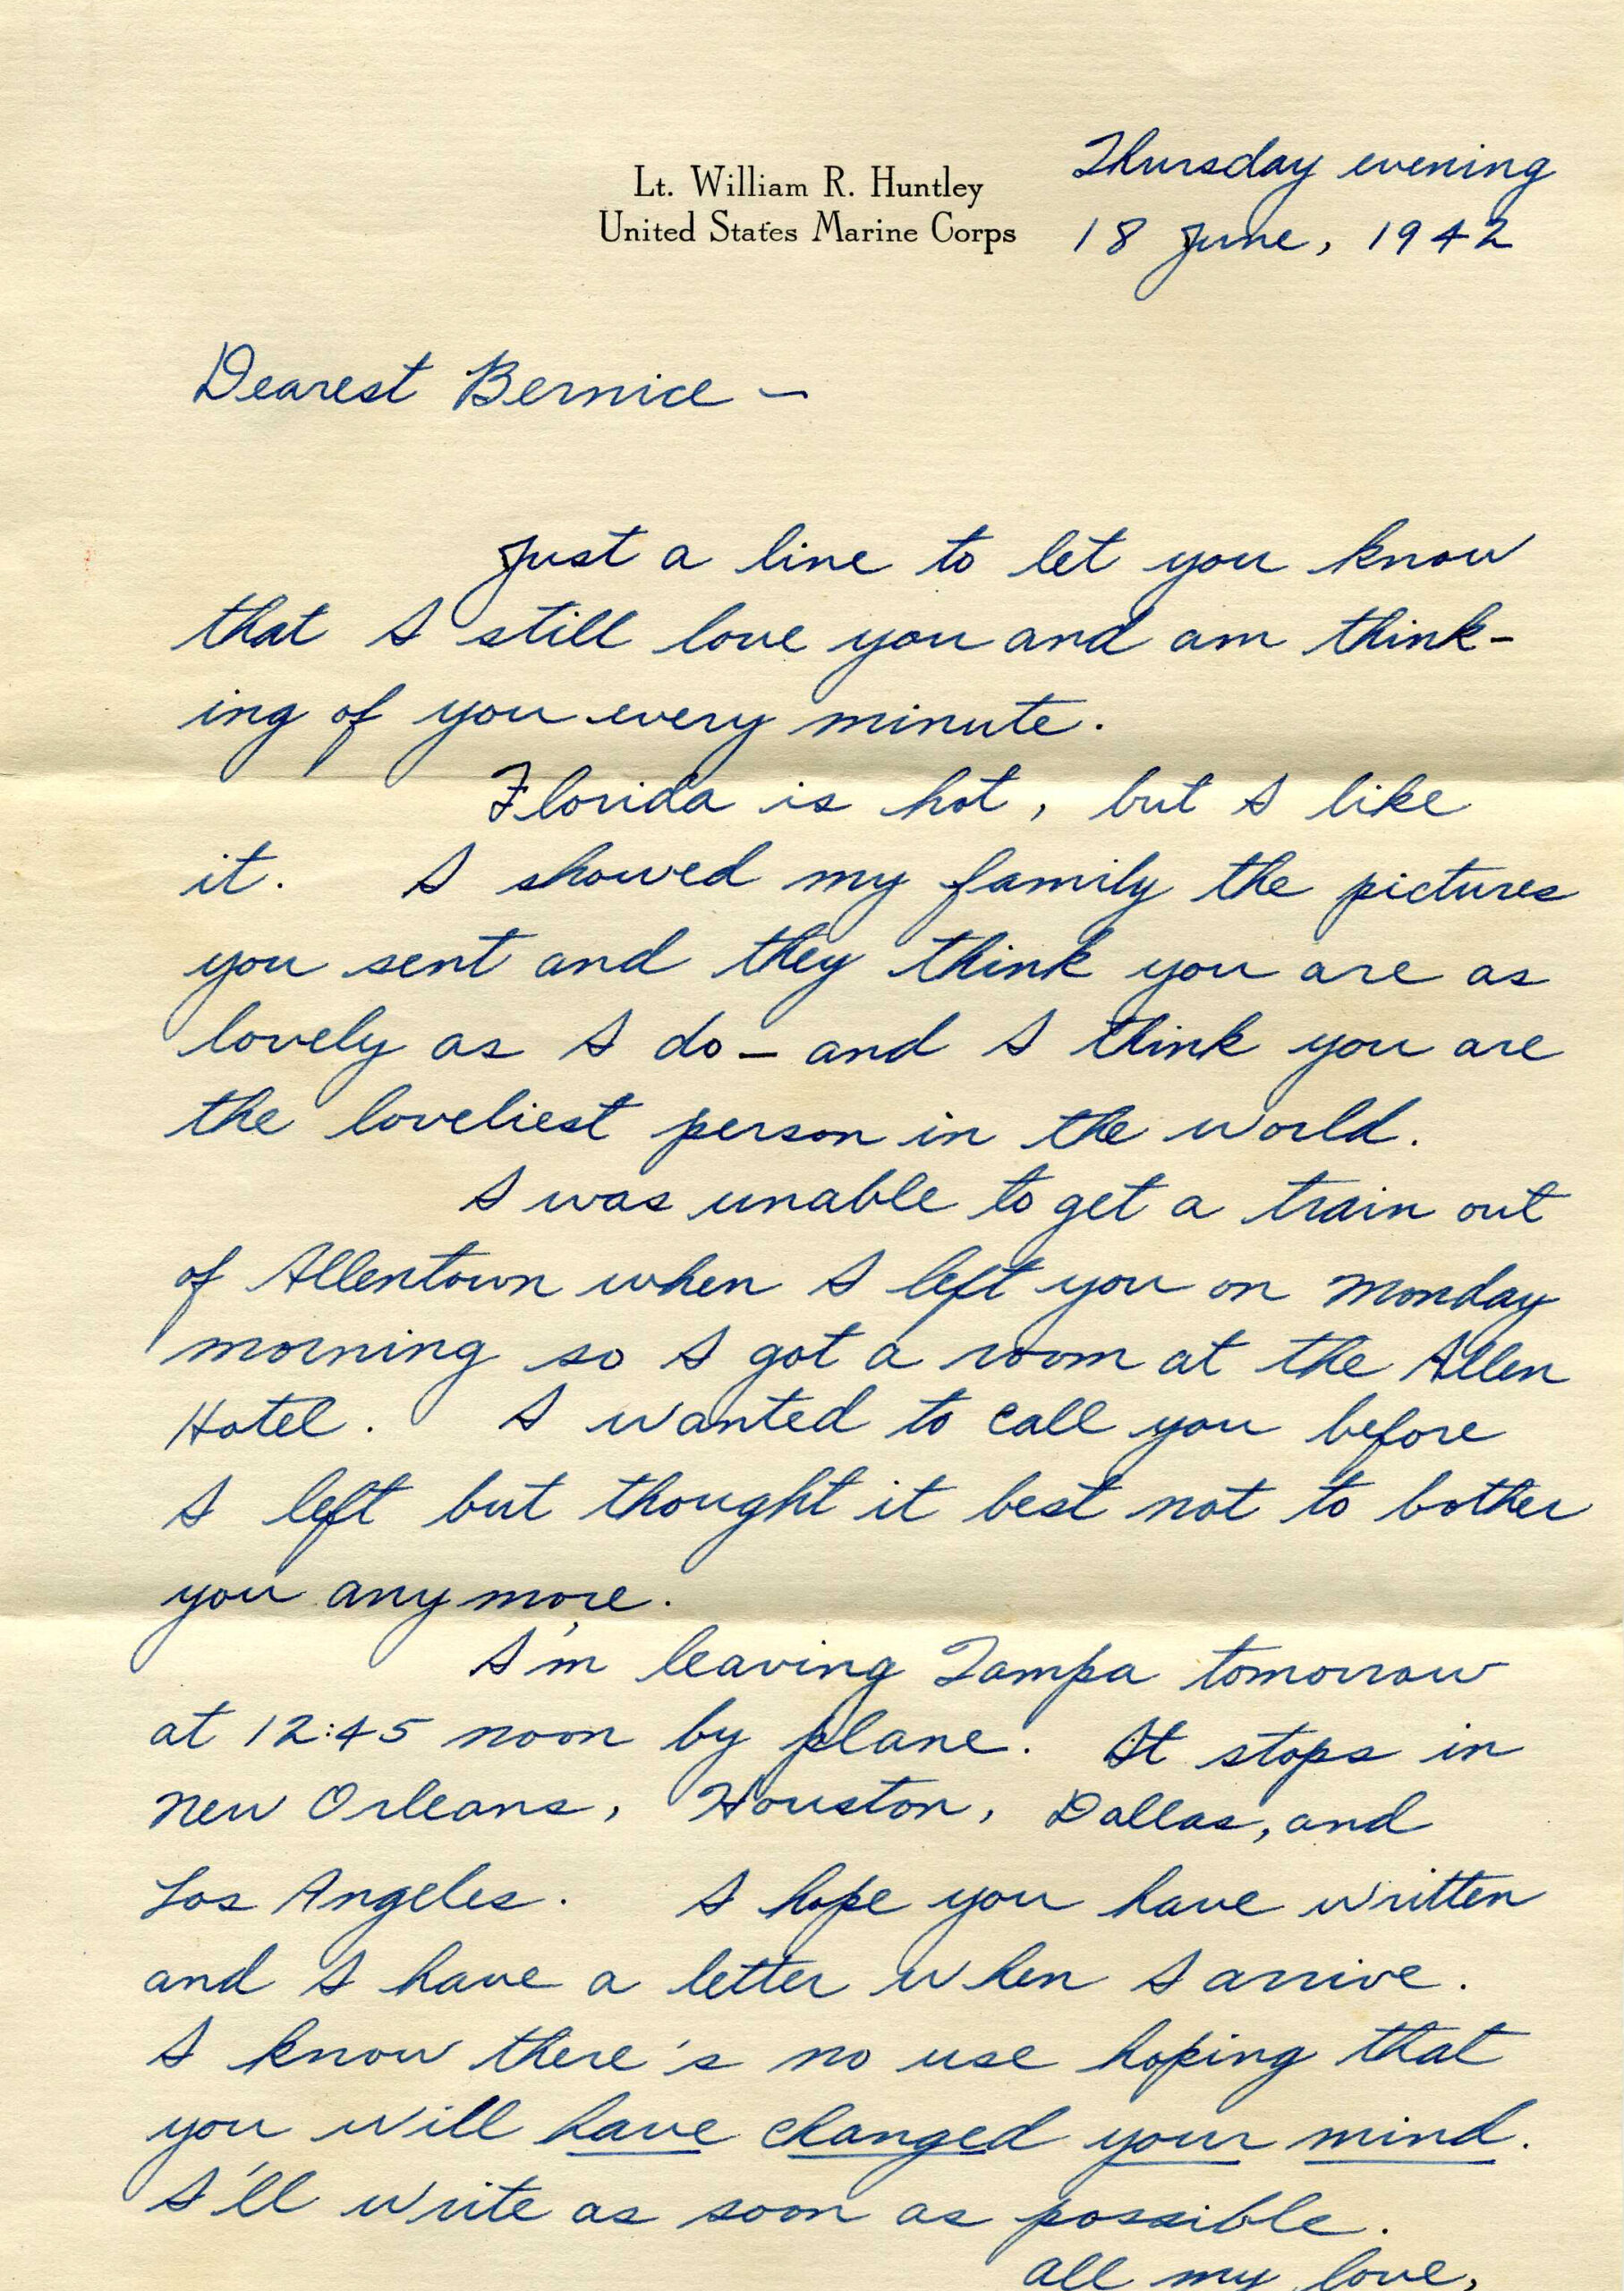 Lt. William R. Huntley
United States Marine Corps
Thursday evening
18 June, 1942
Dearest Bernice —
Just a line to let you know
that I still love you and am think-
ing of you every minute.
Florida is hot, but I like
it. I showed my family the pictures
you sent and they think you are as
lovely as I do — and I think you are
the loveliest person in the world.
I was unable to get a train out
of Allentown when I left you on Monday
morning so I got a room at the Allen
Hotel. I wanted to call you before
I left but thought it best not to bother
you any more.
I'm leaving Tampa tomorrow
at 12:45 noon by plane. It stops in
New Orleans, Houston, Dallas, and
Los Angeles. I hope you have written
and I have a letter when I arrive.
I know there's no use hoping that
you will have changed your mind.
I'll write as soon as possible.
All my love,